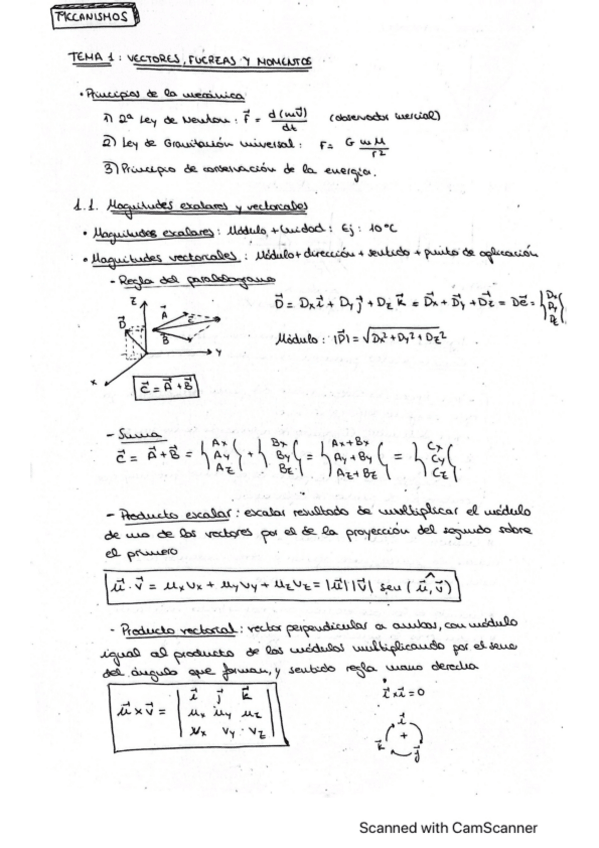 MECANISMOS
TEMA 1: VECTORES, FUERZAS Y MOMENTOS
• Principios de la mecánica
1) 2ª Ley de Newton: F⃗ = d(mv⃗)/dt (observador inercial)
2) Ley de Gravitación universal: F = G mM/r²
3) Principio de conservación de la energía.
1.1. Magnitudes escalares y vectoriales
• Magnitudes escalares: Módulo + Unidad: Ej: 10ºC
• Magnitudes vectoriales: Módulo + dirección + sentido + punto de aplicación
- Regla del paralelogramo
z D⃗ A⃗ c⃗ B⃗ y x
D⃗ = Dx i⃗ + Dy j⃗ + Dz k⃗ = D⃗x + D⃗y + D⃗z = De⃗ = {Dx Dy Dz}
Módulo: |D⃗| = √Dx² + Dy² + Dz²
c⃗ = A⃗ + B⃗
- Suma
c⃗ = A⃗ + B⃗ = {Ax Ay Az} + {Bx By Bz} = {Ax+Bx Ay+By Az+Bz} = {Cx Cy Cz}
- Producto escalar: escalar resultado de multiplicar el módulo
de uno de los vectores por el de la proyección del segundo sobre
el primero
u⃗ · v⃗ = ux vx + uy vy + uz vz = |u⃗| |v⃗| sen (u⃗, v⃗)
- Producto vectorial: vector perpendicular a ambos, con módulo
igual al producto de los módulos multiplicando por el seno
del ángulo que forman, y sentido regla mano derecha
u⃗ x v⃗ = | i⃗ j⃗ k⃗ ux uy uz vx vy vz |
i⃗ x i⃗ = 0
i⃗ + k⃗ j⃗
Scanned with CamScanner